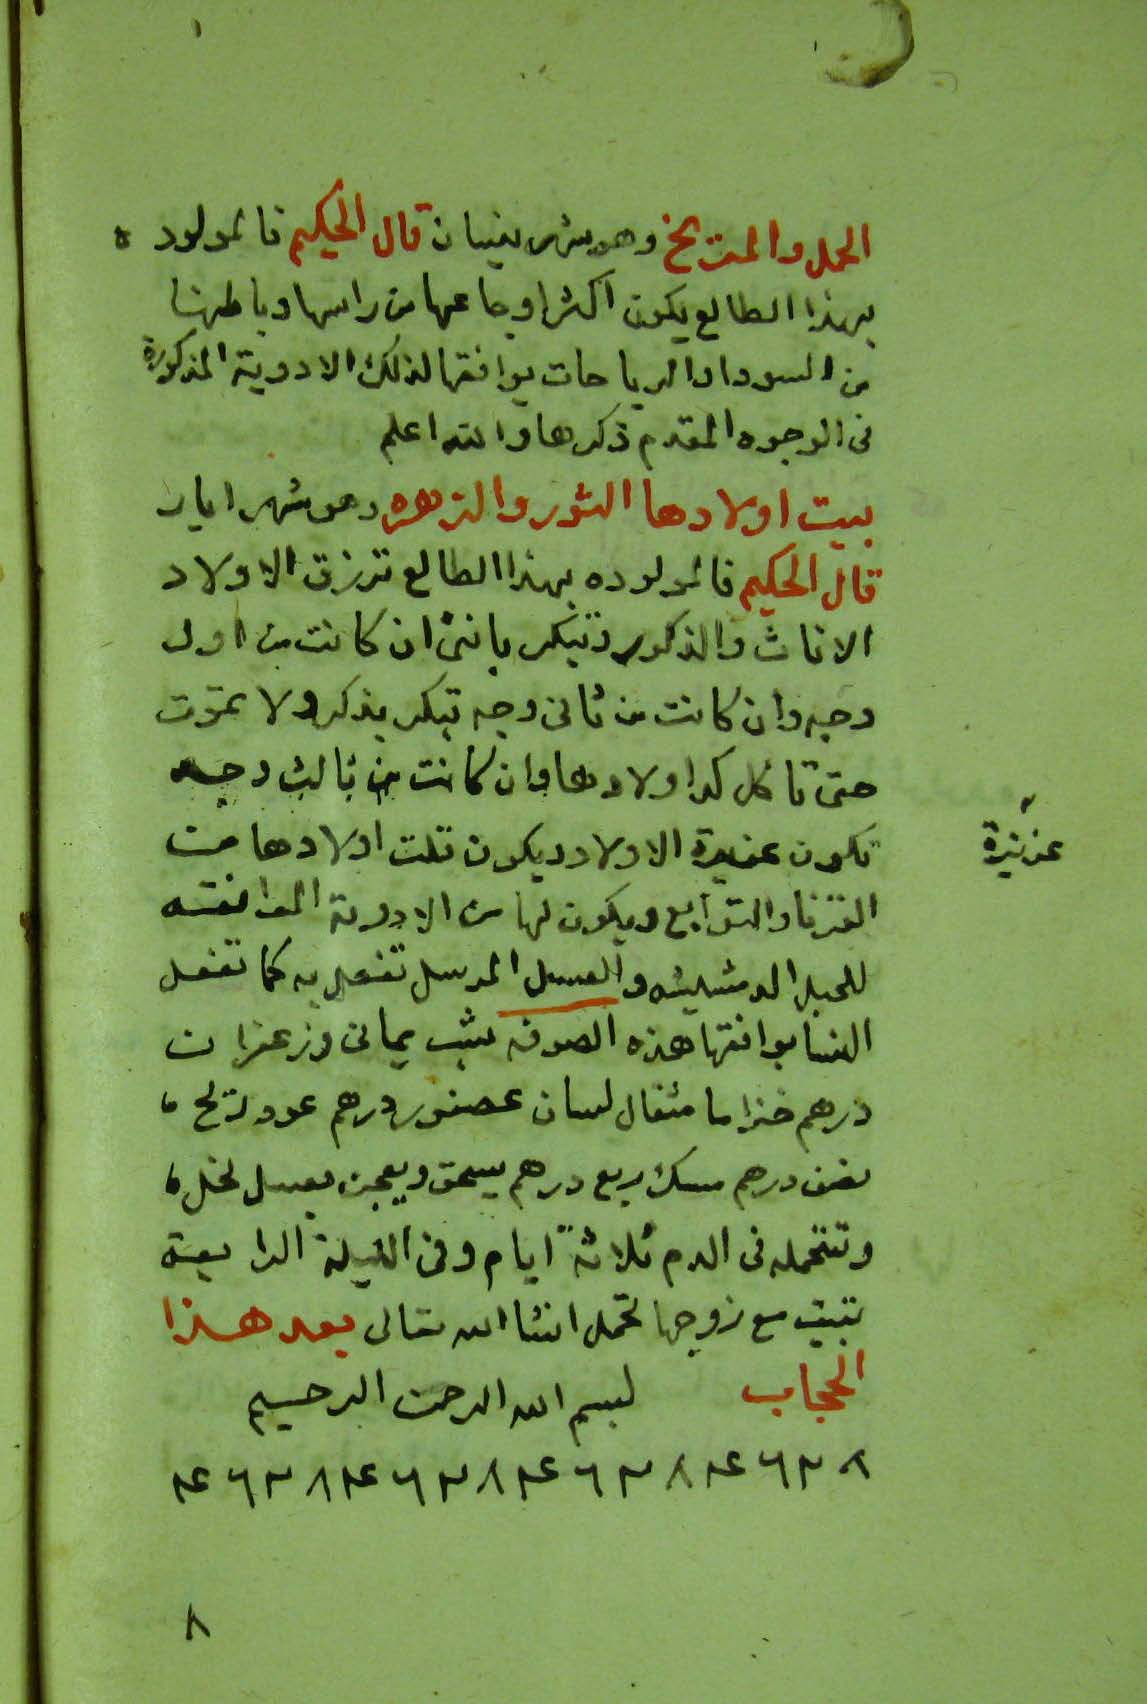 الحمل والمريخ وهو شهر نيسان قال الحكيم فالمولود ه
بهذا الطالع يكون اكثر اوجاعها من راسها وباطنها
من السودا والرياحات يوافقها لذلك الادوية المذكورة
فى الوجوه المقدم ذكرها والله اعلم
بيت اولادها الثور والزهره وهو شهر ايار
قال الحكيم فالمولوده بهذا الطالع ترزق الاولاد
الاناث والذكور وتبكر بانثى ان كانت من اول
وجه وان كانت من ثانى وجه تبكر بذكر ولا تموت
حتى تاكل كد اولادها وان كانت من ثالث وجه
تكون عزيزة الاولاد ويكون تلت اولادها من
عزيزة
القرنا والتوابع ويكون لها من الادوية الموافقه
للحبل والعسل المرسل تفعل به كما تفعل
النسا يوافقها هذه الصوفه شب يمانى وزعفران
درهم خزاما مثقال لسان عصفور درهم عود ريح
نصف درهم مسك ربع درهم يسحق ويعجن بعسل نحل
وتتحمله فى الدم ثلاثة ايام وفى الليلة الرابعة
تبيت مع زوجها تحمل انشا الله تعالى بعد هذا
الحجاب بسم الله الرحمن الرحيم
٨